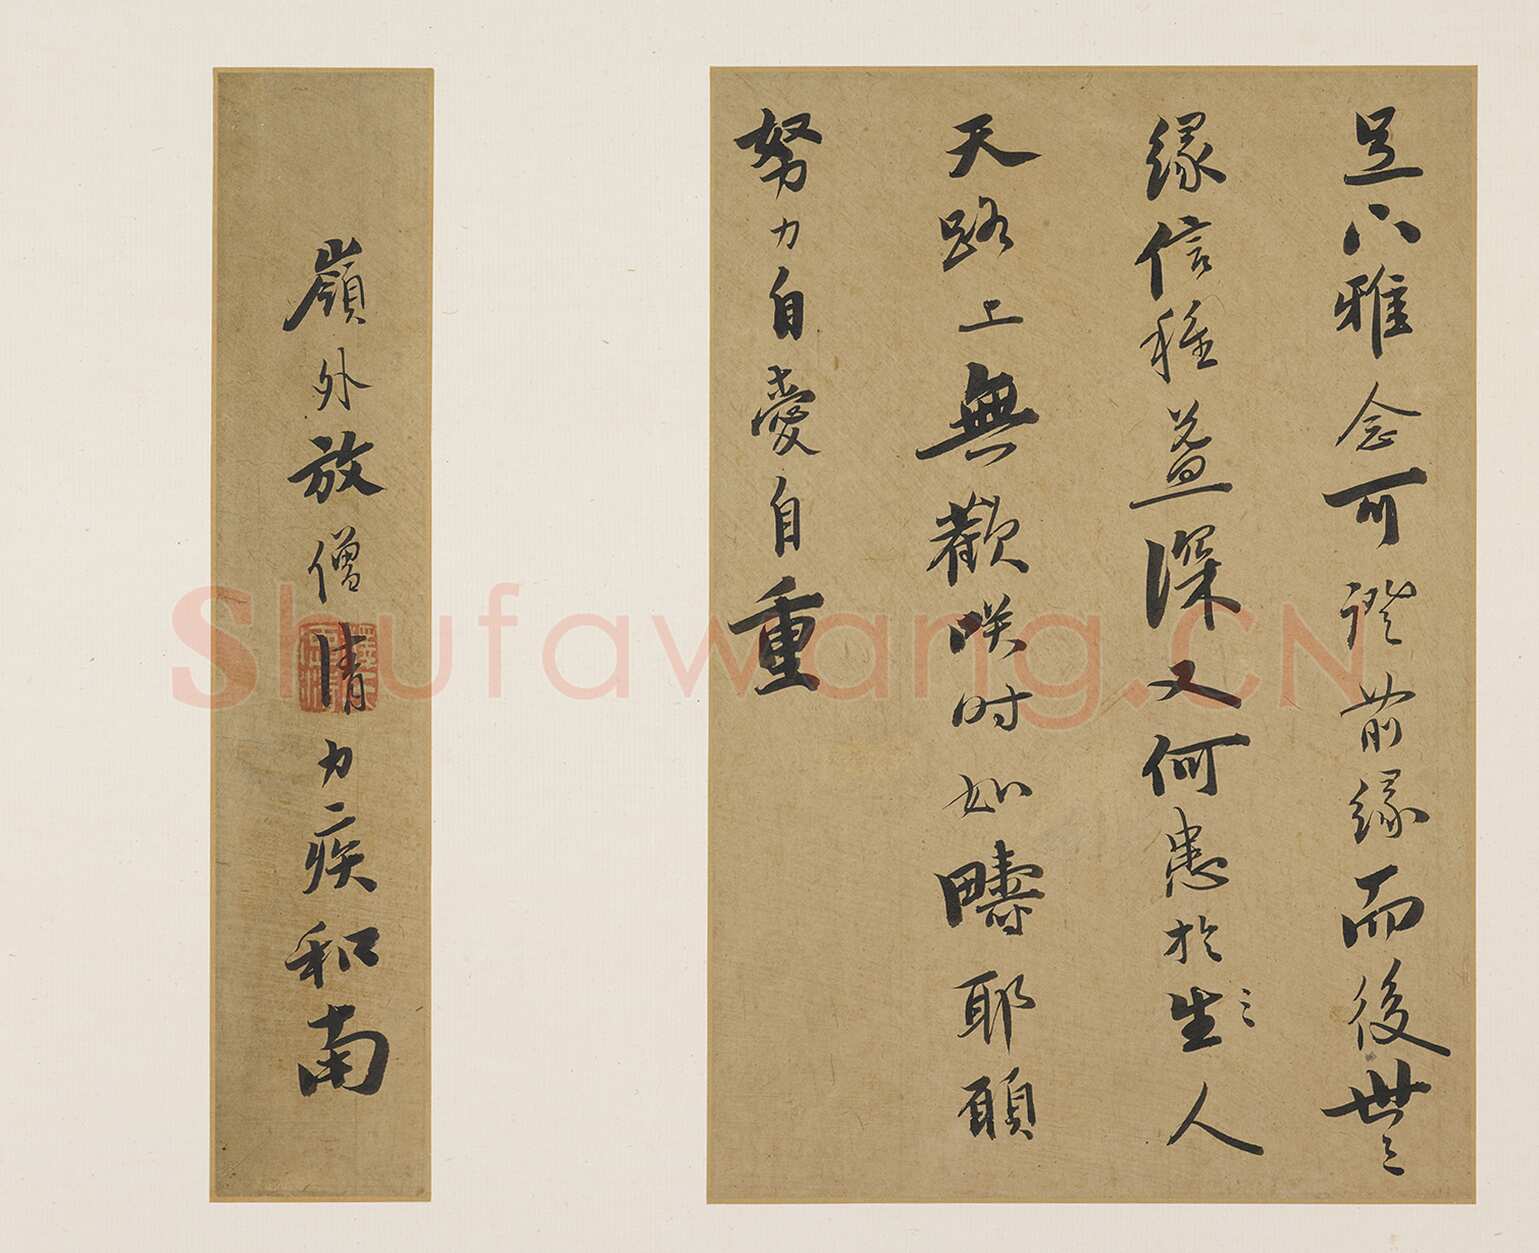 足下雅念可證前緣而後世〻
緣信種益深又何患於生〻人
天路上無歡咲时如疇耶願
努力自愛自重
嶺外放僧清力疾和南
Shufawang.CN